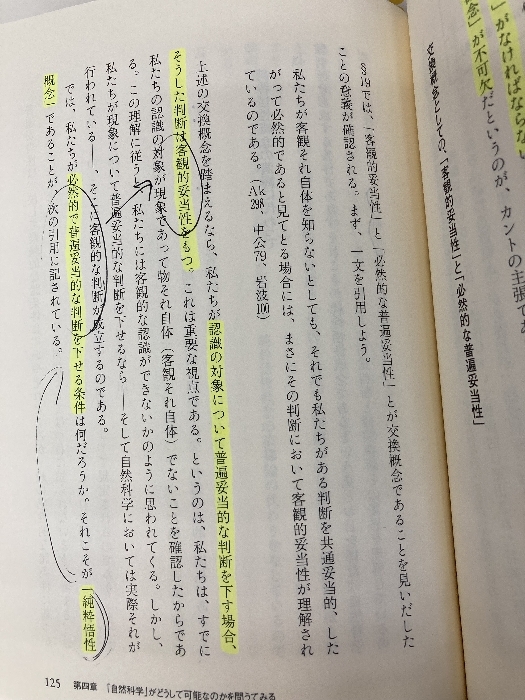 」がなければならない
念」が不可欠だというのが、カントの主張であ
交換概念としての、「客観的妥当性」と「必然的な普遍妥当性」
§19では、「客観的妥当性」と「必然的な普遍妥当性」とが交換概念であることを見いだした
ことの意義が確認される。まず、一文を引用しよう。
私たちが客観それ自体を知らないとしても、それでも私たちがある判断を共通妥当的、した
がって必然的であると見てとる場合には、まさにその判断において客観的妥当性が理解され
ているのである。（Ak 298, 中公79, 岩波100）
上述の交換概念を踏まえるなら、私たちが認識の対象について普遍妥当的な判断を下す場合、
そうした判断は客観的妥当性をもつ。これは重要な視点である。というのは、私たちは、すでに
私たちの認識の対象が現象であって物それ自体（客観それ自体）でないことを確認したからであ
る。この理解に従うと、私たちには客観的な認識ができないかのように思われてくる。しかし、
私たちが現象について普遍妥当的な判断を下せるなら――そして自然科学においては実際それが
行われている――、そこに客観的な判断が成立するのである。
では、私たちが必然的で普遍妥当的な判断を下せる条件は何だろうか。それこそが「純粋悟性
概念」であることが、次の引用に記されている。
125 第四章 「自然科学」がどうして可能なのかを問うてみる